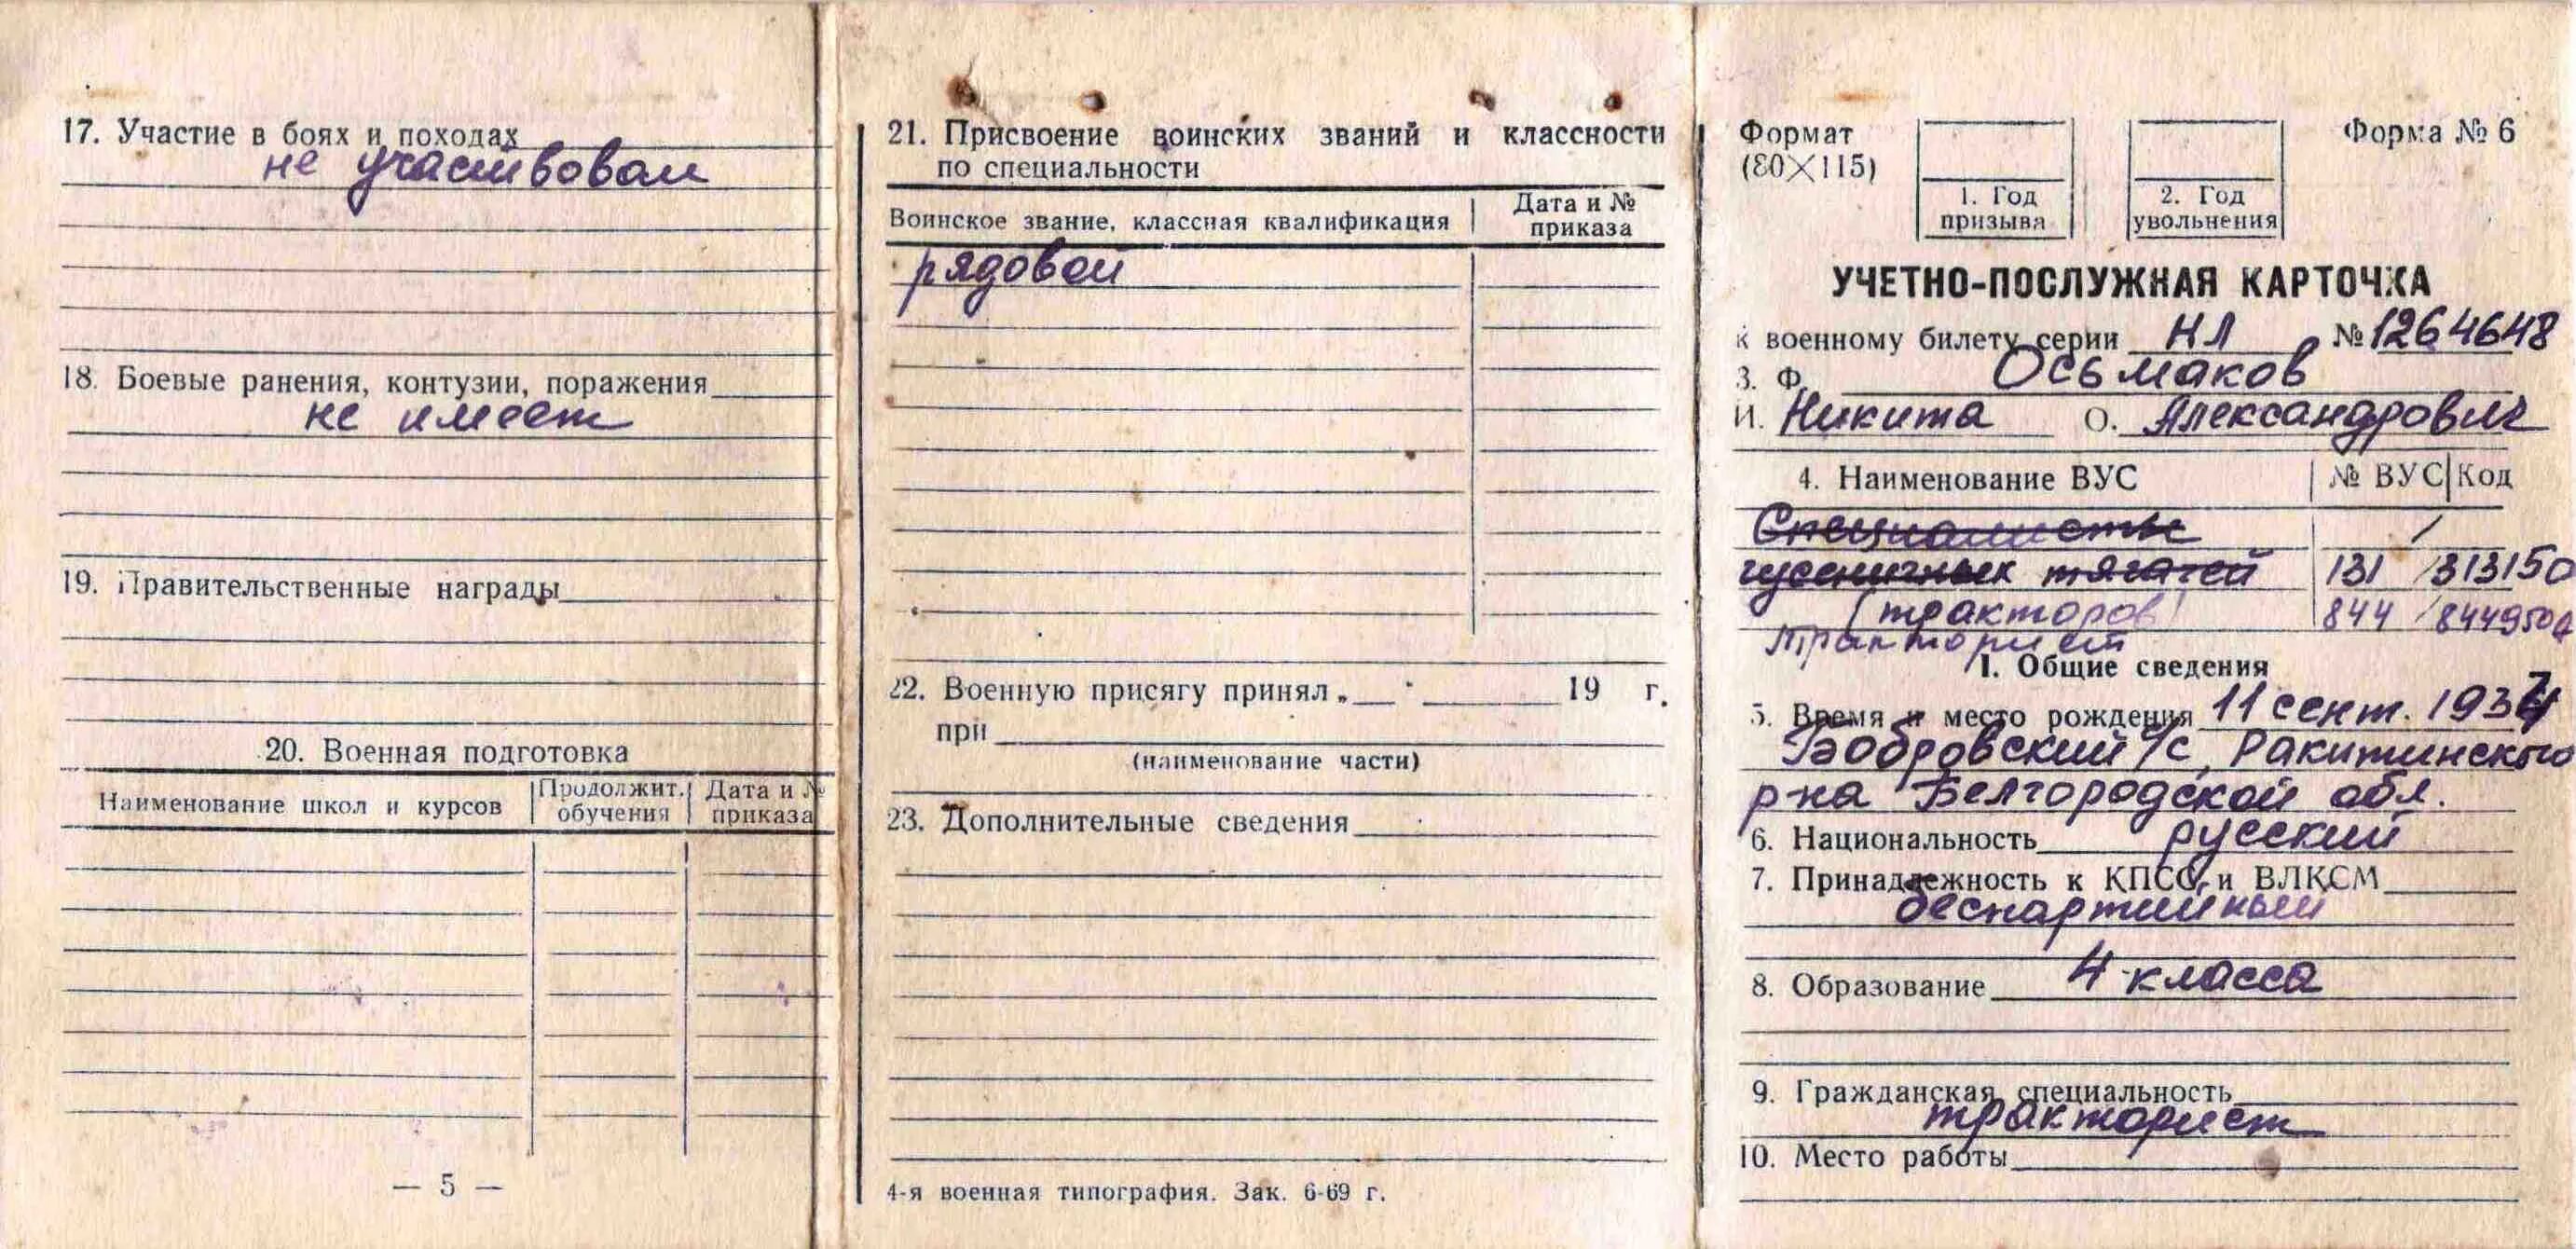 17. Участие в боях и походах
не участвовал
18. Боевые ранения, контузии, поражения
не имеет
19. Правительственные награды
20. Военная подготовка
Наименование школ и курсов
Продолжит. обучения
Дата и № приказа
— 5 —
21. Присвоение воинских званий и классности
по специальности
Воинское звание, классная квалификация
Дата и № приказа
рядовой
22. Военную присягу принял „ " 19 г.
при
(наименование части)
23. Дополнительные сведения
4-я военная типография. Зак. 6-69 г.
Формат
(80×115)
1. Год призыва
2. Год увольнения
Форма № 6
УЧЕТНО-ПОСЛУЖНАЯ КАРТОЧКА
к военному билету серии НЛ № 1264648
3. Ф. Осьмаков
И. Никита О. Александрович
4. Наименование ВУС № ВУС Код
Специалисты /
гусеничных тягачей 131 / 313150
(тракторов) 844 /
Тракторист
1. Общие сведения
5. Время и место рождения 11 сент. 1937
Бобровский с/с, Ракитинского
р-на Белгородской обл.
6. Национальность русский
7. Принадлежность к КПСС и ВЛКСМ
беспартийный
8. Образование 4 класса
9. Гражданская специальность
тракторист
10. Место работы